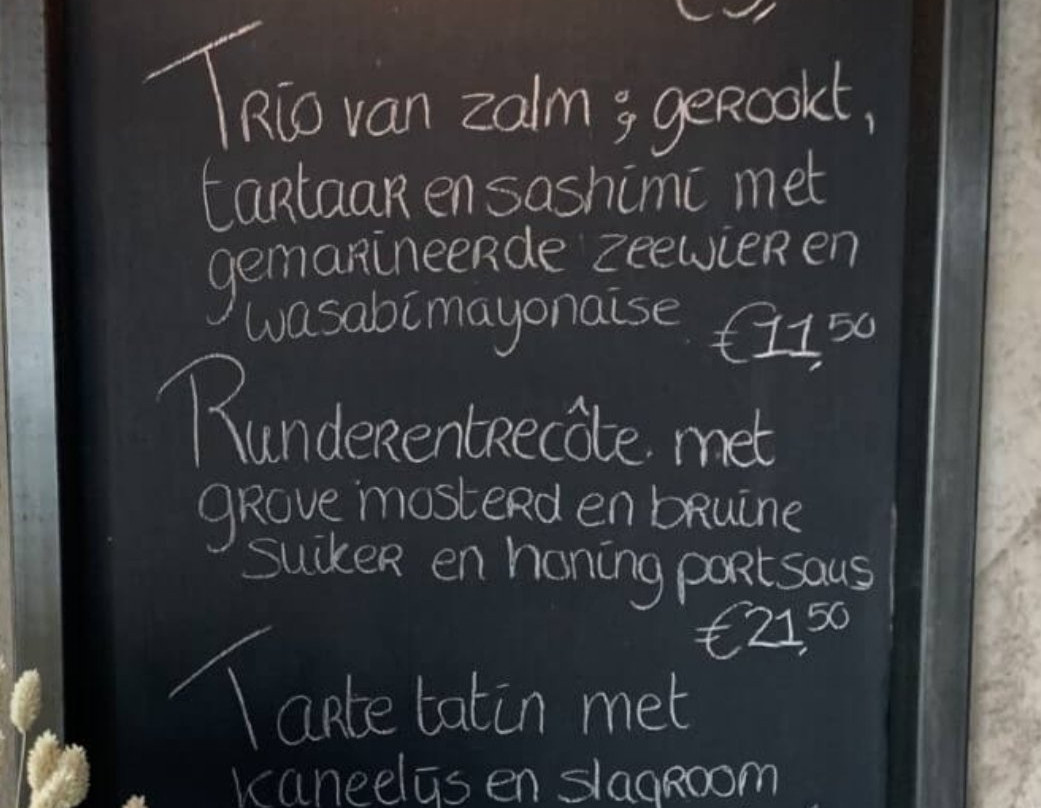 Trio van zalm ; gerookt,
tartaar en sashimi met
gemarineerde zeewier en
wasabimayonaise €11,50
Runderentrecôte met
grove mosterd en bruine
suiker en honing portsaus
€21,50
Tarte tatin met
kaneelijs en slagroom